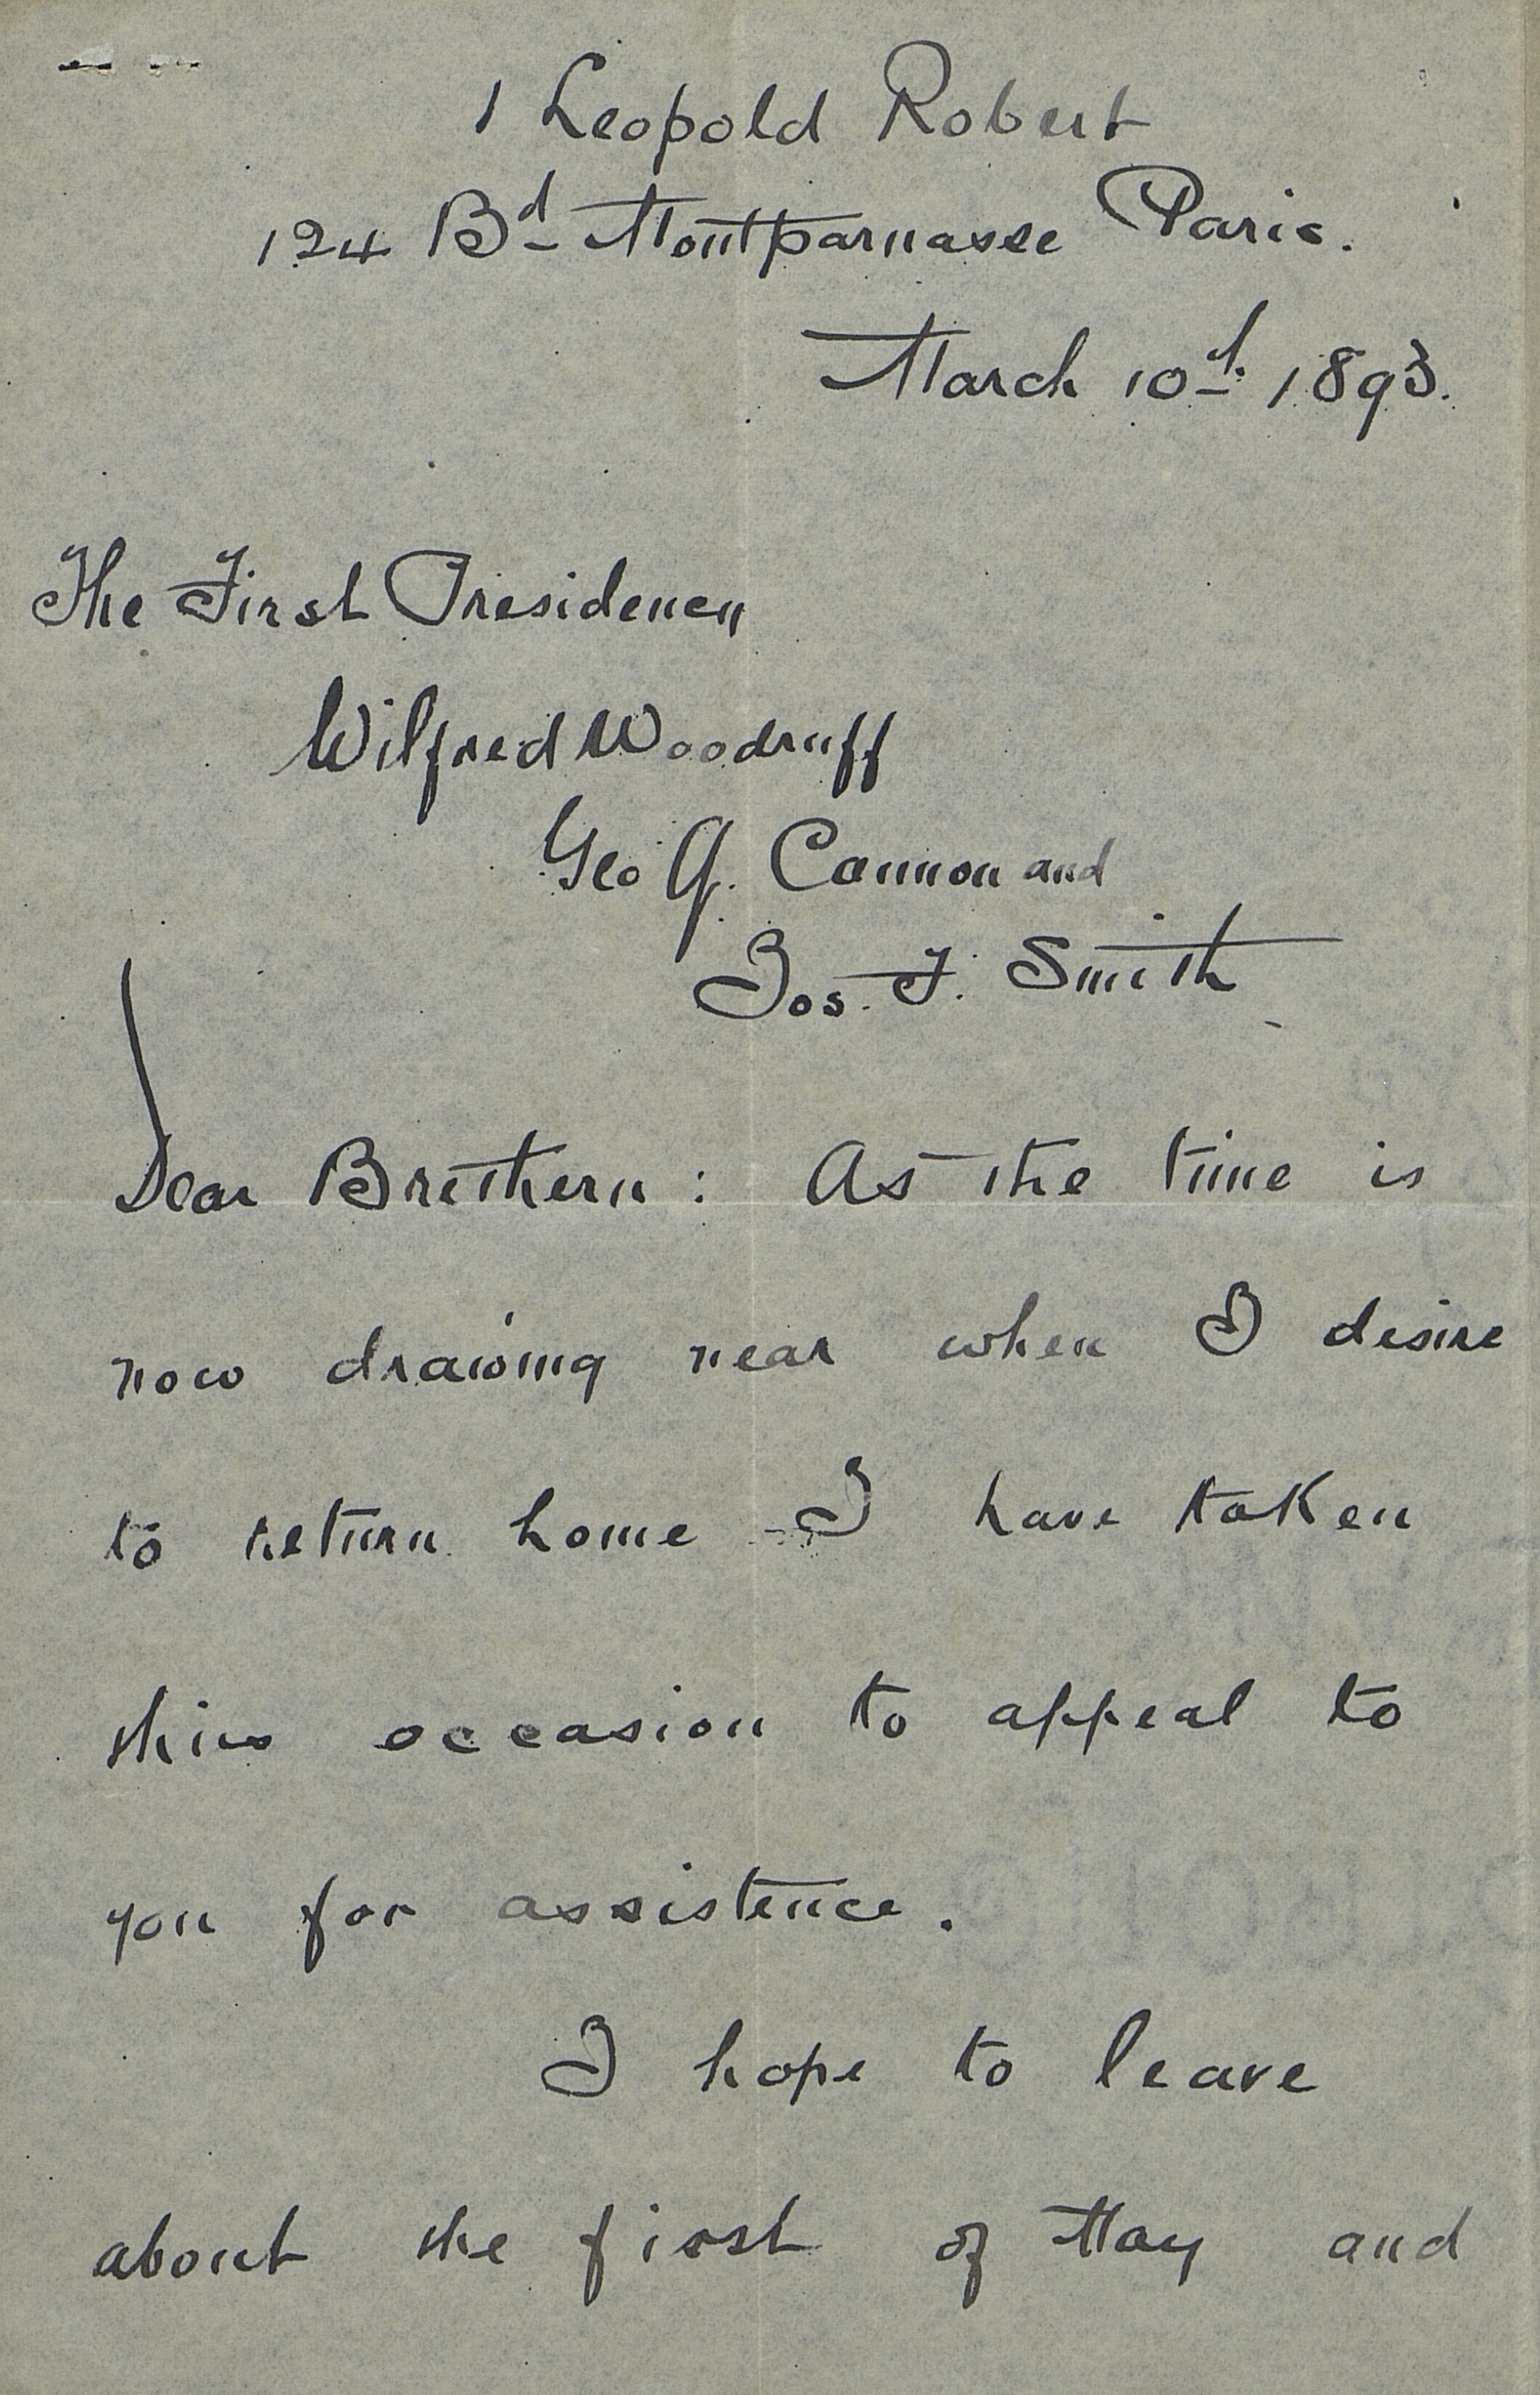 1 Leopold Robert
124 Bd Montparnasse Paris.
March 10th 1893.
The First Presidency
Wilfred Woodruff
Geo Q. Cannon and
Jos. F. Smith
Dear Brethern: As the time is
now drawing near when I desire
to return home I have taken
this occasion to appeal to
you for assistence.
I hope to leave
about the first of May and